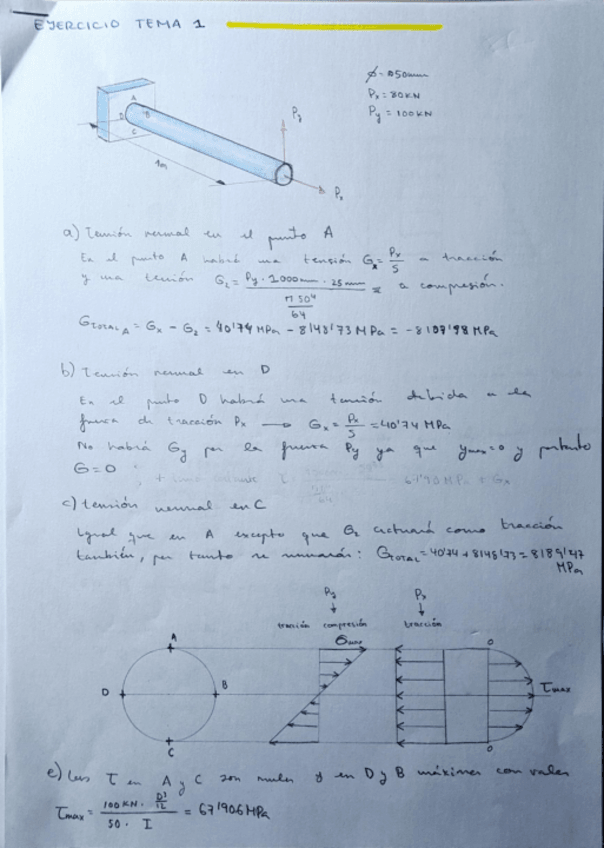 EJERCICIO TEMA 1
ϕ = ø50mm
Px = 80KN
Py = 100KN
A
D
B
C
Py
1m
Px
a) Tensión normal en el punto A
En el punto A habrá una tensión Gx = Px/S a tracción
y una tensión G2 = Py · 1000mm · 25mm / (π 50⁴/64) = a compresión.
GTOTAL A = Gx - G2 = 40'74 MPa - 8148'73 MPa = -8107'98 MPa
b) Tensión normal en D
En el punto D habrá una tensión debida a la
fuerza de tracción Px → Gx = Px/S = 40'74 MPa
No habrá Gy por la fuerza Py ya que ymax=0 y portanto
G=0
c) tensión normal en C
Igual que en A excepto que G2 actuará como tracción
también, por tanto se sumarán: GTOTAL = 40'74 + 8148'73 = 8189'47
MPa
Py
Px
tracción compresión
tracción
A
σmax
0
D
B
τmax
C
0
e) Las τ en A y C son nulas y en D y B máximas con valor
τmax = 100KN · D³/12 / 50 · I = 67'906 MPa